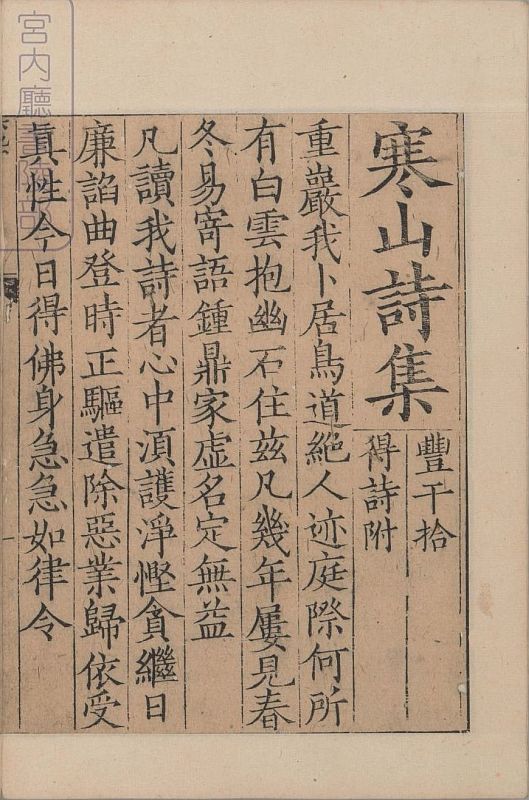 寒山詩集
豐干拾
得詩附
重巖我卜居鳥道絕人迹庭際何所
有白雲抱幽石住玆凡幾年屢見春
冬易寄語鍾鼎家虛名定無益
凡讀我詩者心中湏護淨慳貪繼日
廉諂曲登時正驅遣除惡業歸依受
眞性今日得佛身急急如律令
宮内廳書陵部